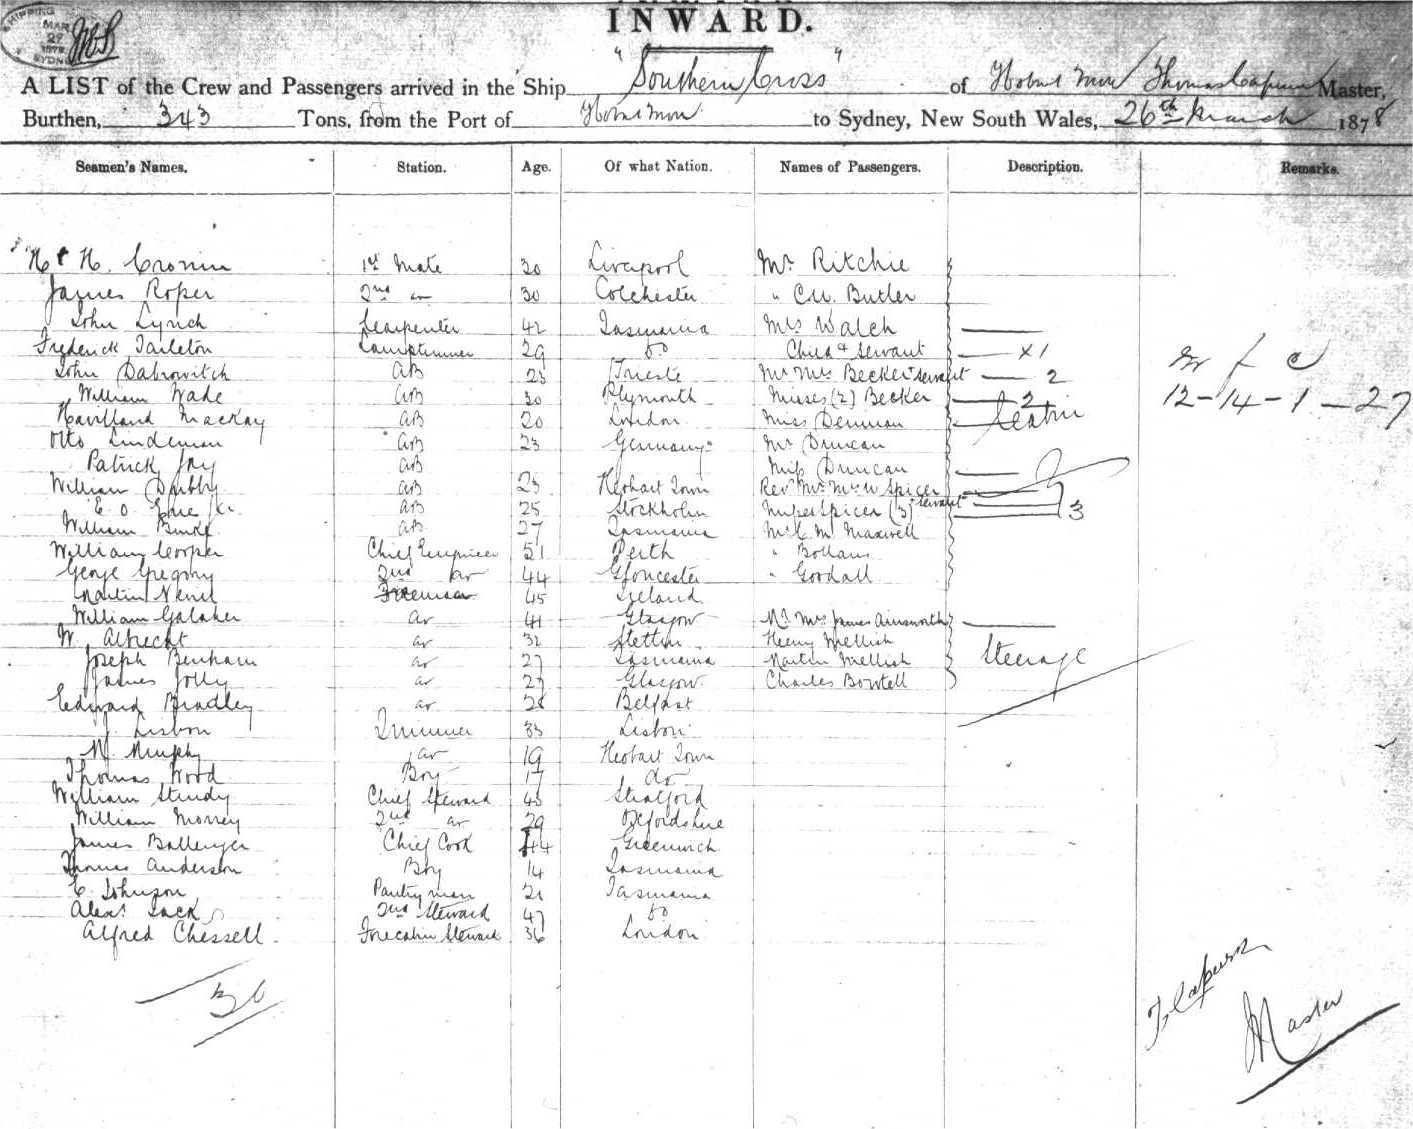 SHIPPING
MAR
27
1878
SYDNEY
INWARD.
A LIST of the Crew and Passengers arrived in the Ship "Southern Cross" of Hobart Town Thomas Capurn Master,
Burthen, 343 Tons, from the Port of Hobart Town to Sydney, New South Wales, 26th March 1878
Seamen's Names. Station. Age. Of what Nation. Names of Passengers. Description. Remarks.
H. Cronin 1st Mate 30 Liverpool Mr Ritchie
James Roper 2nd do 30 Colchester " C.W. Butler
John Lynch Carpenter 42 Tasmania Mrs Walch
Frederick Tarleton Lamptrimmer 29 do Child & Servant x 1
John Dabrowitch AB 25 Trieste Mr Mrs Becker & Servant 2
William Wade AB 30 Plymouth Misses (2) Becker 2
Havilland Mackay AB 20 London Miss Denman Cabin
Otto Lindeman AB 23 Germany Mr Duncan
Patrick AB Miss Duncan
William Darbby AB 23 Hobart Town Revd Mr Mrs W Spicer & Servant
E. O. AB 25 Stockholm Misses Spicer (3) 3
William Burke AB 27 Tasmania Mr C M Maxwell
William Cooper Chief Engineer 51 Perth "
George Gregory 2nd do 44 Gloucester " Goodall
Martin Fireman 45 Ireland
William Galaher do 41 Glasgow Mr Mrs James Ainsworth
W. Albrecht do 32 Stettin Henry Mellish
Joseph Benham do 27 Tasmania Martin Mellish Steerage
James Jolly do 27 Glasgow Charles Bowtell
Edward Bradley do 28 Belfast
J. Lisbon Trimmer 33 Lisbon
M. Murphy do 19 Hobart Town
Thomas Wood Boy 17 do
William Sturdy Chief Steward 43 Stratford
William Morrey 2nd do 29 Oxfordshire
James Ballenger Chief Cook 44 Greenwich
Thomas Anderson Boy 14 Tasmania
E. Johnson Pantryman 21 Tasmania
Alexr Jack 2nd Steward 47 do
Alfred Chessell Forecabin Steward 36 London
12-14-1-27
30
T Capurn
Master